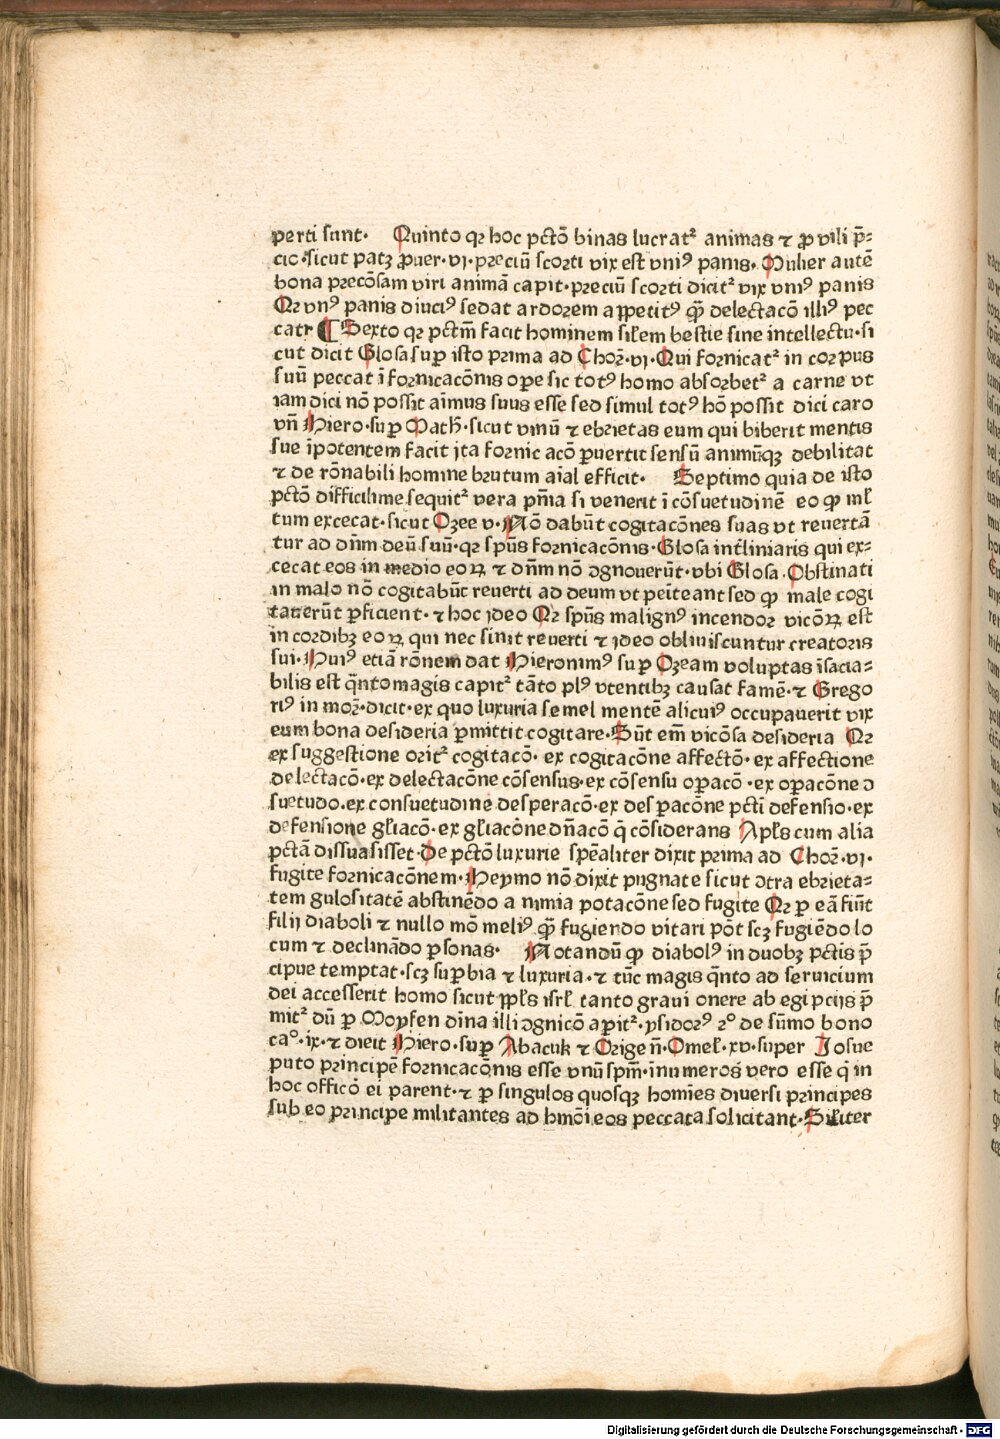 perti sunt· Quinto qꝛ hoc pctō binas lucrat᷑ animas ⁊ ꝓ vili p̄-
cio·sicut patꝫ ꝓuer·vj·preciū scorti vix est vniꝰ panis· Mulier autē
bona precōsam viri animā capit·preciū scorti dicit᷑ vix vniꝰ panis
Qꝛ vnꝰ panis diuciꝰ sedat ardorem appetitꝰ q̄ꝫ delectacō illiꝰ pec
catr ¶ Sexto qꝛ pctm̄ facit hominem sil̄em bestie sine intellectu·si
cut dicit Glosa suꝑ isto prima ad Choꝝ·vj·Qui fornicat᷑ in corpus
suū peccat ī fornicacōnis oꝑe sic totꝰ homo absorbet᷑ a carne vt
iam dici nō possit aīmus suus esse sed simul totꝰ hō possit dici caro
vn̄ Hiero·suꝑ Math̄·sicut vinū ⁊ ebrietas eum qui biberit mentis
sue īpotentem facit jta fornicacō ꝑuertit sensū animūqꝫ debilitat
⁊ de rōnabili homine brutum aīal efficit· Septimo quia de isto
pctō difficilime sequit᷑ vera pn̄ia si venerit ī cōsuetudinē eo ꝙ ml̄
tum excecat·sicut Ozee v·Nō dabūt cogitacōnes suas vt reuertā
tur ad dn̄m deū suū·qꝛ spūs fornicacōnis·Glosa int̄liniaris qui ex-
cecat eos in medio eoꝝ ⁊ dn̄m nō ɔgnouerūt·vbi Glosa·Obstinati
in malo nō cogitabūt reuerti ad deum vt peīteant sed ꝙ male cogi
tauerūt ꝑficient·⁊ hoc jdeo Qꝛ spūs malignꝰ incendor vicōꝝ est
in cordibꝫ eoꝝ qui nec sinit reuerti ⁊ jdeo obliuiscuntur creatoris
sui·Huiꝰ etiā rōnem dat Hieronimꝰ suꝑ Ozeam voluptas īsacia-
bilis est q̄nto magis capit᷑ tāto plꝰ vtentibꝫ causat famē·⁊ Grego
riꝰ in moꝝ·dicit·ex quo luxuria semel mentē alicuiꝰ occupauerit vix
eum bona desideria ꝑmittit cogitare·Sūt em̄ vicōsa desideria Qꝛ
ex suggestione orit᷑ cogitacō· ex cogitacōne affectō·ex affectione
delectacō·ex delectacōne cōsensus·ex cōsensu oꝑacō·ex oꝑacōne ɔ
suetudo·ex consuetudine desperacō·ex desꝑacōne pcti defensio·ex
defensione gl̄iacō·ex gl̄iacōne dn̄acō q̄ cōsiderans Apl̄s cum alia
pctā dissuasisset·De pctō luxurie spēaliter dixit prima ad Choꝝ·vj·
fugite fornicacōnem·Heymo nō dixit pugnate sicut ɔtra ebrieta-
tem gulositatē abstinēdo a nimia potacōne sed fugite Qꝛ ꝑ eā fiūt
filij diaboli ⁊ nullo mō meliꝰ q̄ꝫ fugiendo vitari pōt scꝫ fugiēdo lo
cum ⁊ declinādo ꝑsonas· Notandū ꝙ diabolꝰ in duobꝫ pctis p̄
cipue temptat·scꝫ suꝑbia ⁊ luxuria·⁊ tūc magis q̄nto ad seruicium
dei accesserit homo sicut ppl̄s isrl̄ tanto graui onere ab egipcijs p̄
mit᷑ dū ꝑ Moysen dīna illi ɔgnicō aꝑit᷑·ysidorꝰ 2° de sūmo bono
ca°·ix·⁊ dicit Hiero·suꝑ Abacuk ⁊ Origen̄·Omel̄·xv·super Josue
puto principē fornicacōnis esse vnū spm̄·īnumeros vero esse q̄ in
hoc officō ei parent·⁊ ꝑ singulos quosqꝫ homīes diuersi principes
sub eo principe militantes ad hmōi eos peccata solicitant·Sil̄iter
Digitalisierung gefördert durch die Deutsche Forschungsgemeinschaft - DFG